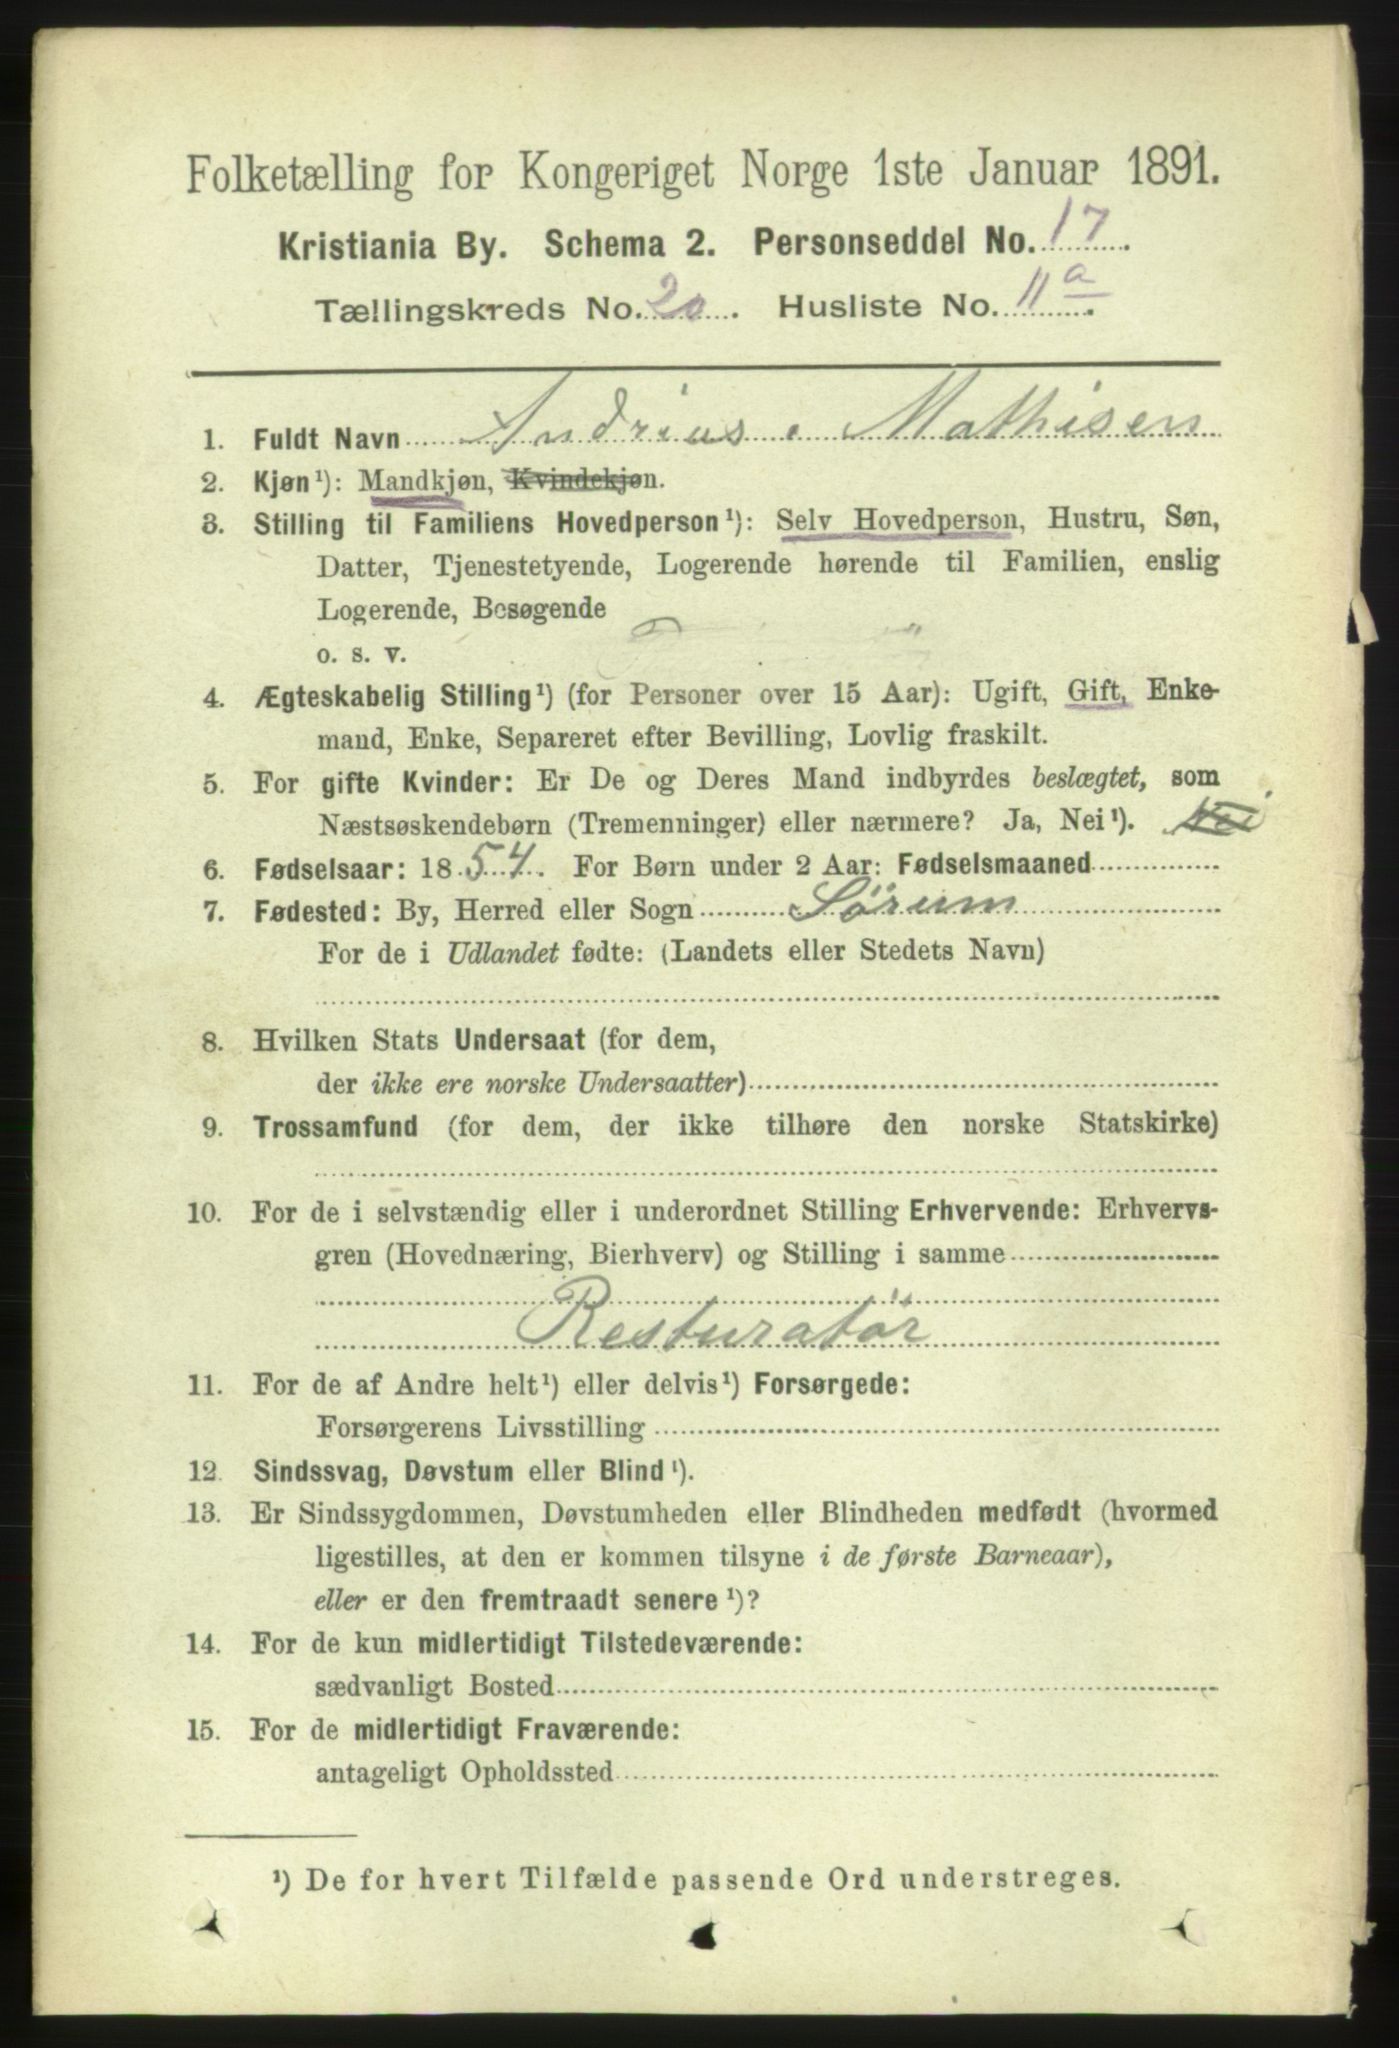 Folketælling for Kongeriget Norge 1ste Januar 1891.
Kristiania By. Schema 2. Personseddel No. 17.
Tællingskreds No. 20. Husliste No. 11a.
1. Fuldt Navn Andrius Mathisen
2. Kjøn¹): Mandkjøn, Kvindekjøn.
3. Stilling til Familiens Hovedperson¹): Selv Hovedperson, Hustru, Søn,
Datter, Tjenestetyende, Logerende hørende til Familien, enslig
Logerende, Besøgende
o. s. v.
4. Ægteskabelig Stilling¹) (for Personer over 15 Aar): Ugift, Gift, Enke-
mand, Enke, Separeret efter Bevilling, Lovlig fraskilt.
5. For gifte Kvinder: Er De og Deres Mand indbyrdes beslægtet, som
Næstsøskendebørn (Tremenninger) eller nærmere? Ja, Nei¹). Nei
6. Fødselsaar: 1854. For Børn under 2 Aar: Fødselsmaaned
7. Fødested: By, Herred eller Sogn Sørum
For de i Udlandet fødte: (Landets eller Stedets Navn)
8. Hvilken Stats Undersaat (for dem,
der ikke ere norske Undersaatter)
9. Trossamfund (for dem, der ikke tilhøre den norske Statskirke)
10. For de i selvstændig eller i underordnet Stilling Erhvervende: Erhvervs-
gren (Hovednæring, Bierhverv) og Stilling i samme
Resturatör
11. For de af Andre helt¹) eller delvis¹) Forsørgede:
Forsørgerens Livsstilling
12. Sindssvag, Døvstum eller Blind¹).
13. Er Sindssygdommen, Døvstumheden eller Blindheden medfødt (hvormed
ligestilles, at den er kommen tilsyne i de første Barneaar),
eller er den fremtraadt senere¹)?
14. For de kun midlertidigt Tilstedeværende:
sædvanligt Bosted
15. For de midlertidigt Fraværende:
antageligt Opholdssted
¹) De for hvert Tilfælde passende Ord understreges.